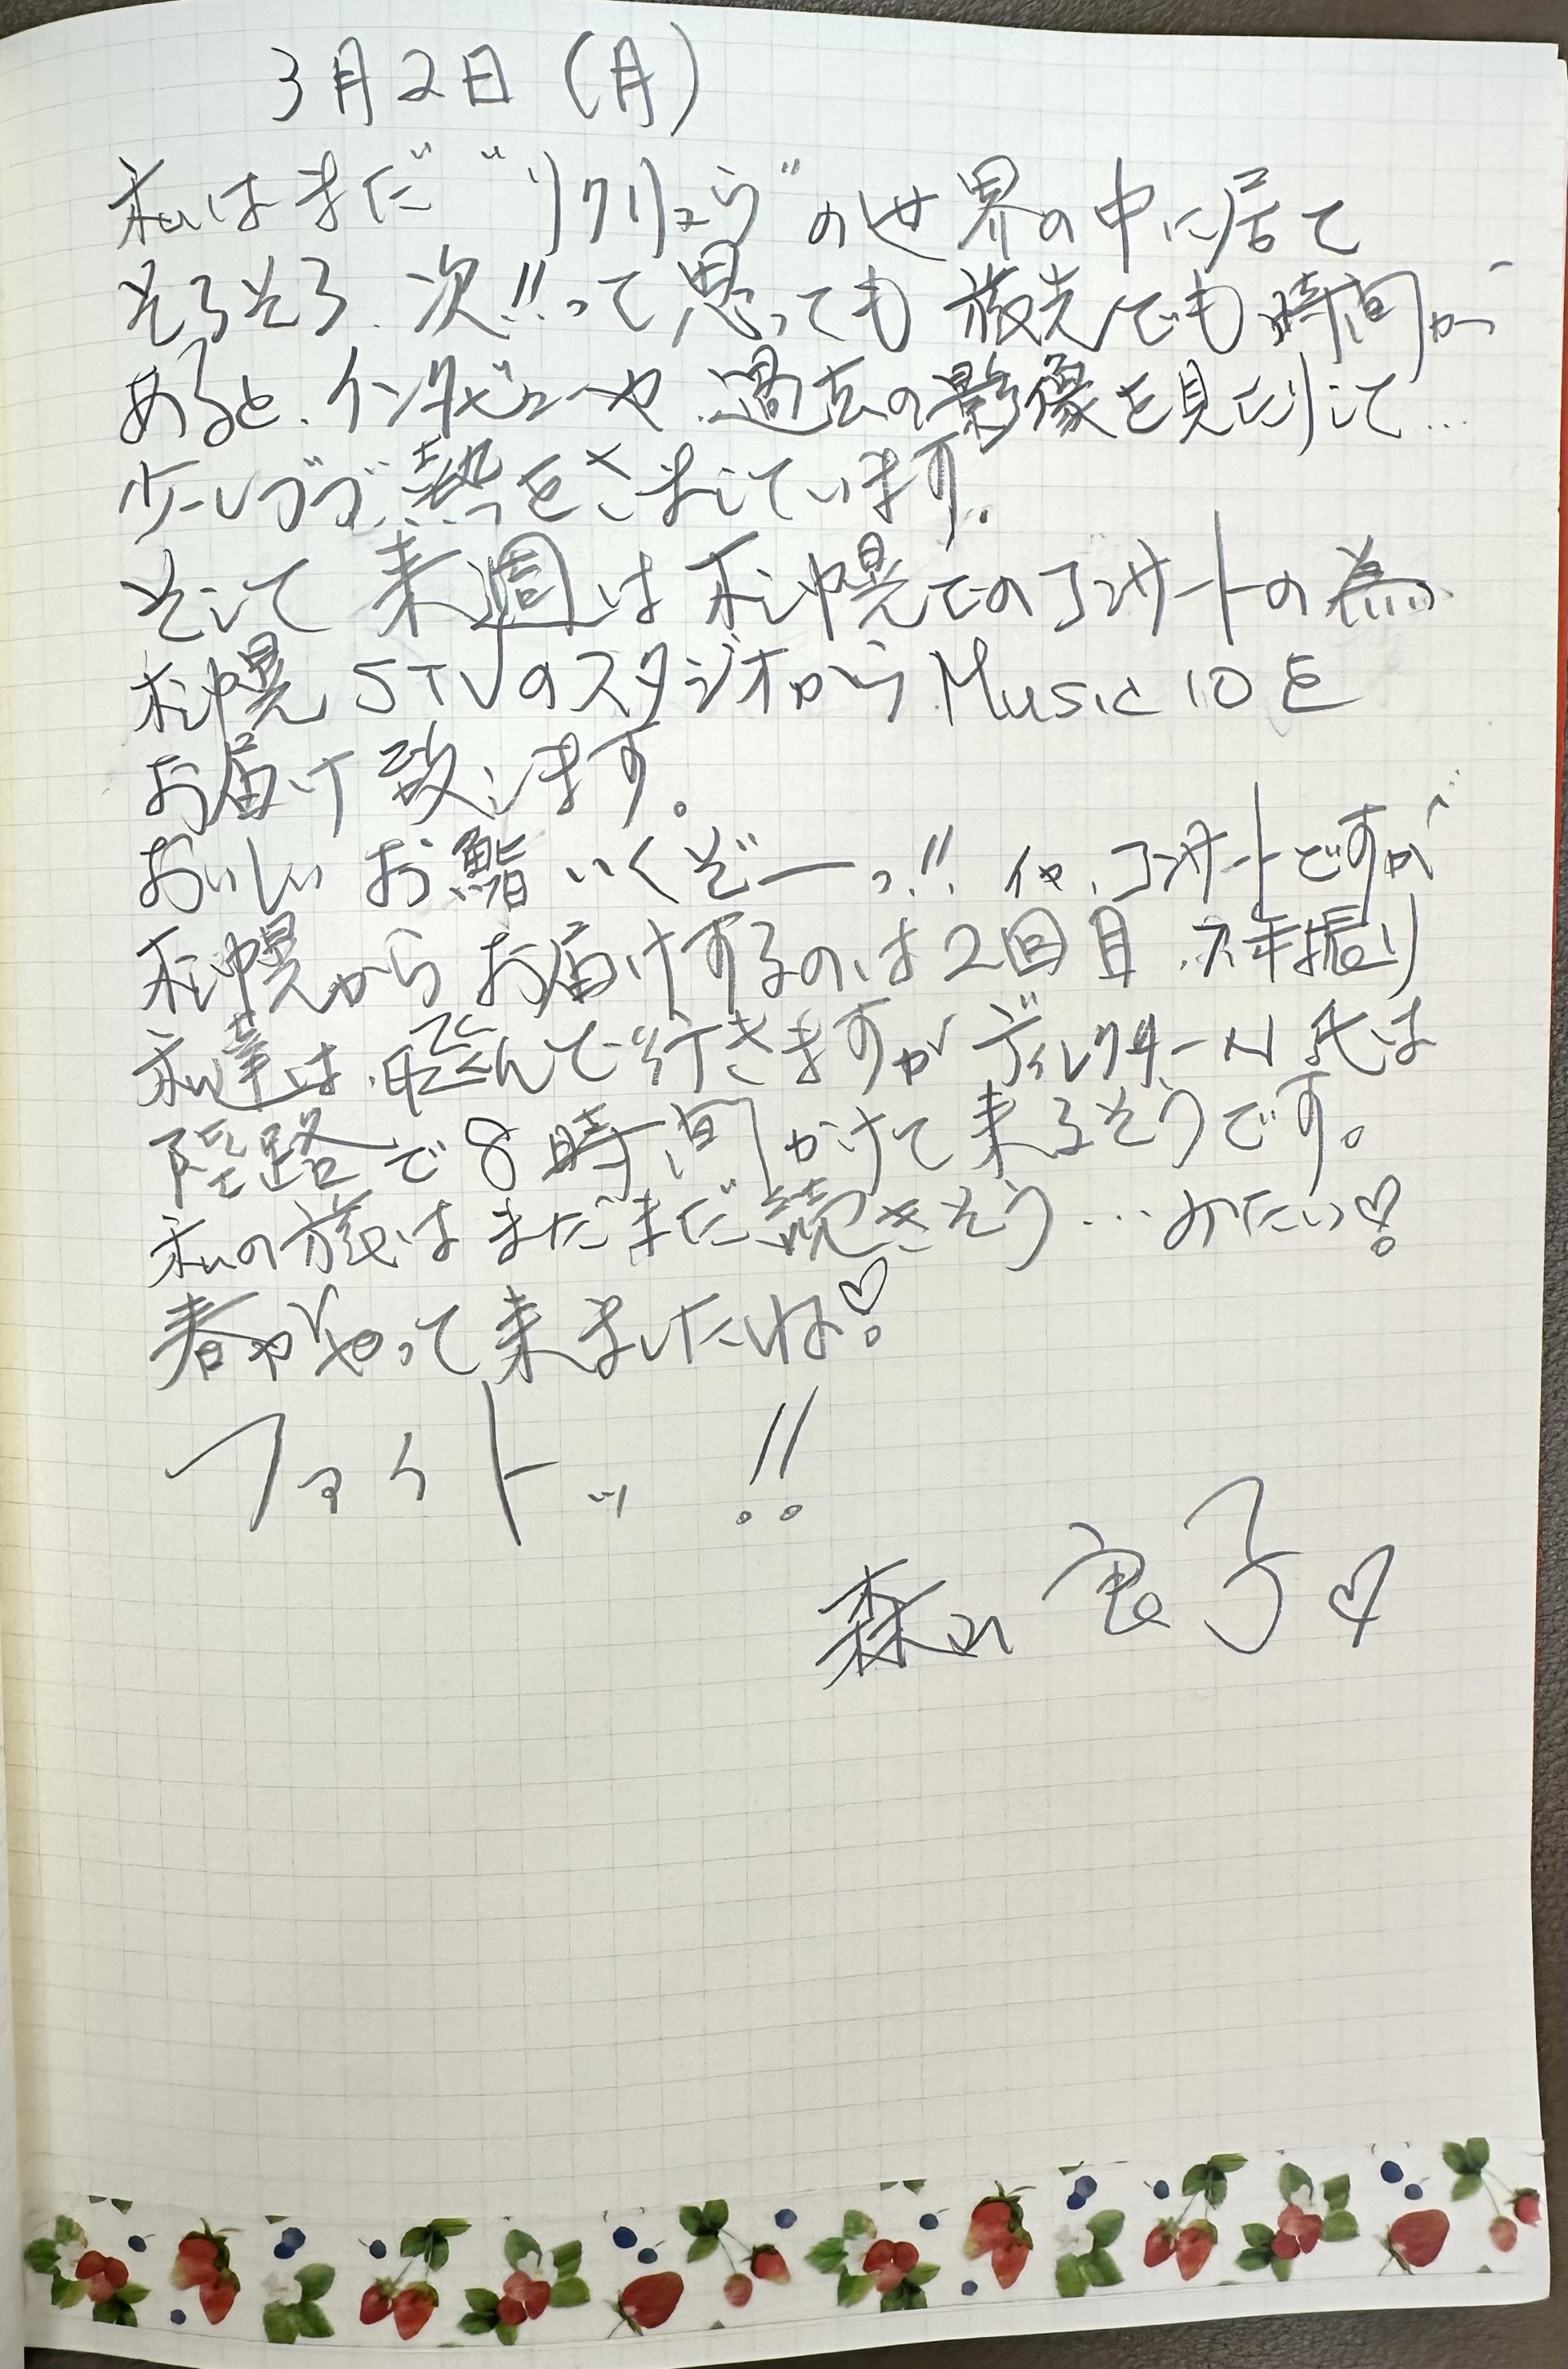 3月2日(月)
私はまだ"りくりゅう"の世界の中に居て
そろそろ、次!!って思っても旅先でも時間が
あると、インタビューや、過去の影像を見たりして…
少しづづ熱をさましています。
そして来週は札幌でのコンサートの為
札幌STVのスタジオからMusic10を
お届け致します。
おいしいお鮨いくぞーっ!!イヤ、コンサートですが
札幌からお届けするのは2回目、7年振り
私達は、飛んで行きますがディレクターN氏は
陸路で8時間かけて来るそうです。
私の旅はまだまだ続きそう…みたい♡。
春がやって来ましたね♡。
ファイトッ!!
森山良子♡